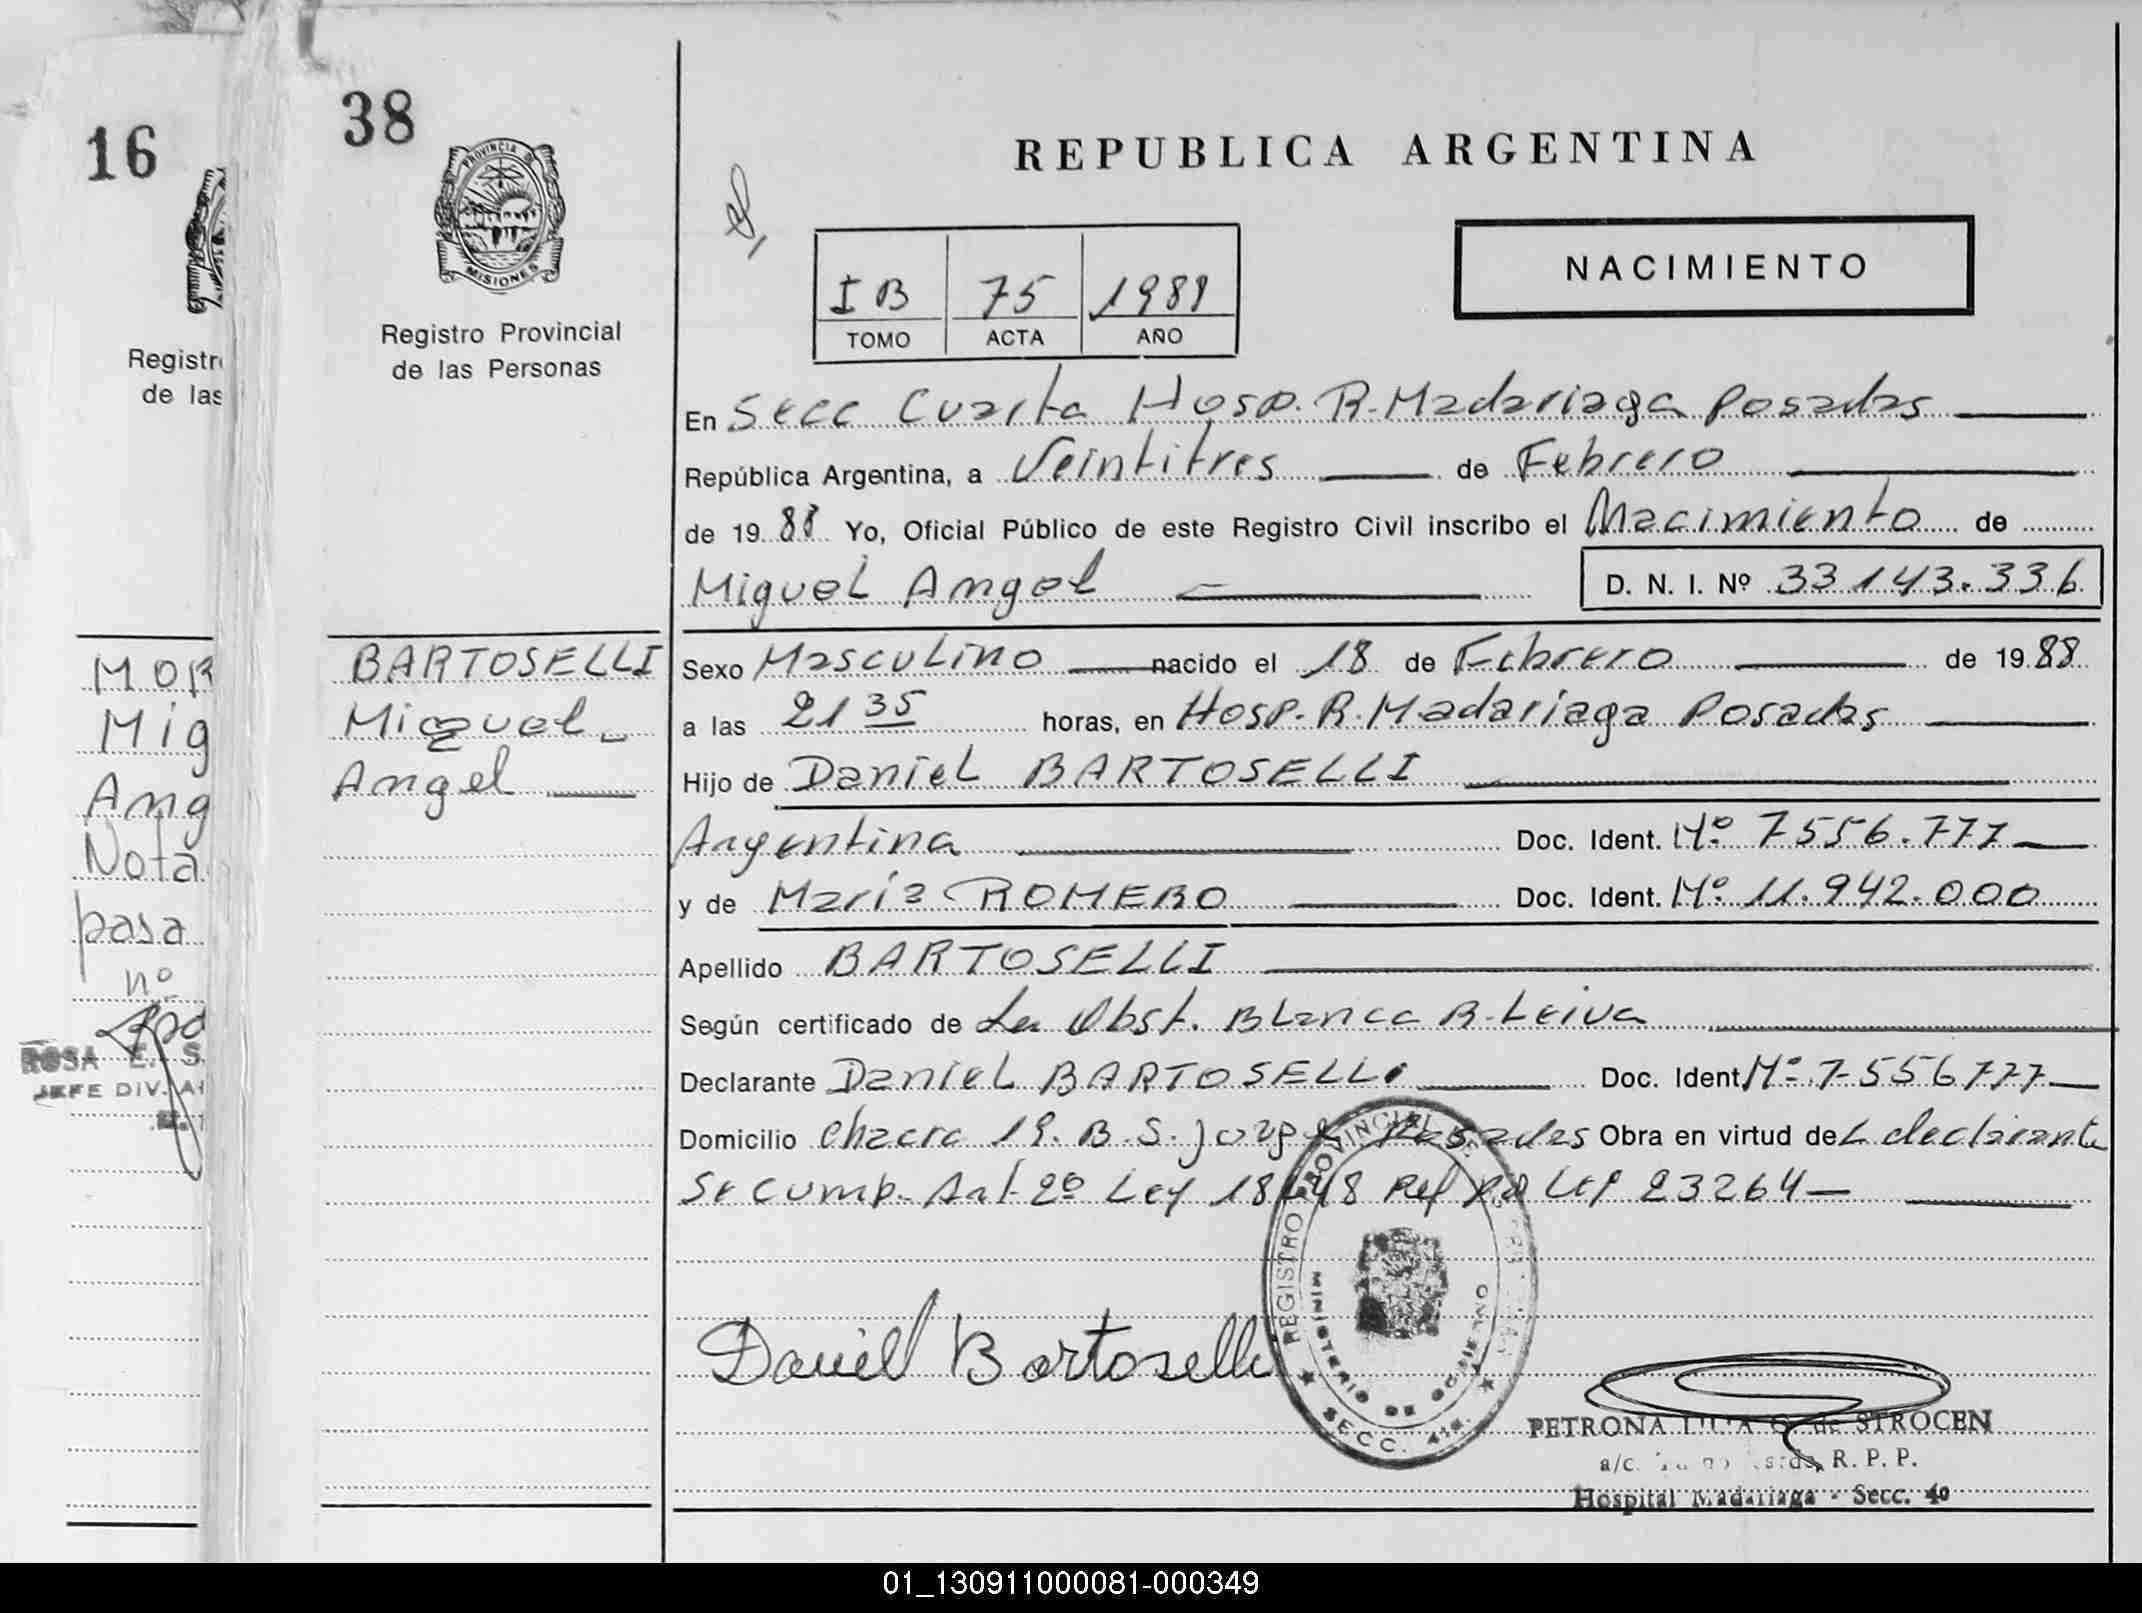 16
Registr
de las
MOR
Mig
Ang
Nota
pasa
nº
ROSA E. S
JEFE DIV. A
38
PROVINCIA DE
MISIONES
Registro Provincial
de las Personas
BARTOSELLI
Miguel
Angel
REPUBLICA ARGENTINA
NACIMIENTO
I B 75 1988
TOMO ACTA AÑO
En Secc Cuarta Hosp. R. Madariaga Posadas
República Argentina, a Veintitres de Febrero
de 19 88 Yo, Oficial Público de este Registro Civil inscribo el Nacimiento de
Miguel Angel D. N. I. Nº 33143.336
Sexo Masculino nacido el 18 de Febrero de 19 88
a las 21 35 horas, en Hosp. R. Madariaga Posadas
Hijo de Daniel BARTOSELLI
Argentina Doc. Ident. Nº 7556.777
y de María ROMERO Doc. Ident. Nº 11.942.000
Apellido BARTOSELLI
Según certificado de La Obst. Blanca R. Leiva
Declarante Daniel BARTOSELLI Doc. Ident Nº 7556777
Domicilio Chacra 19. B. S. Jorge Posadas Obra en virtud de L declarante
Se cump. Art 2º Ley 18248 Ref por Ley 23264
REGISTRO PROVINCIAL DE
MINISTERIO DE GOBIERNO
SECC. 4ta.
Daniel Bartoselli
PETRONA de STROCEN
a/c. R. P. P.
Hospital Madariaga - Secc. 4º
01_130911000081-000349